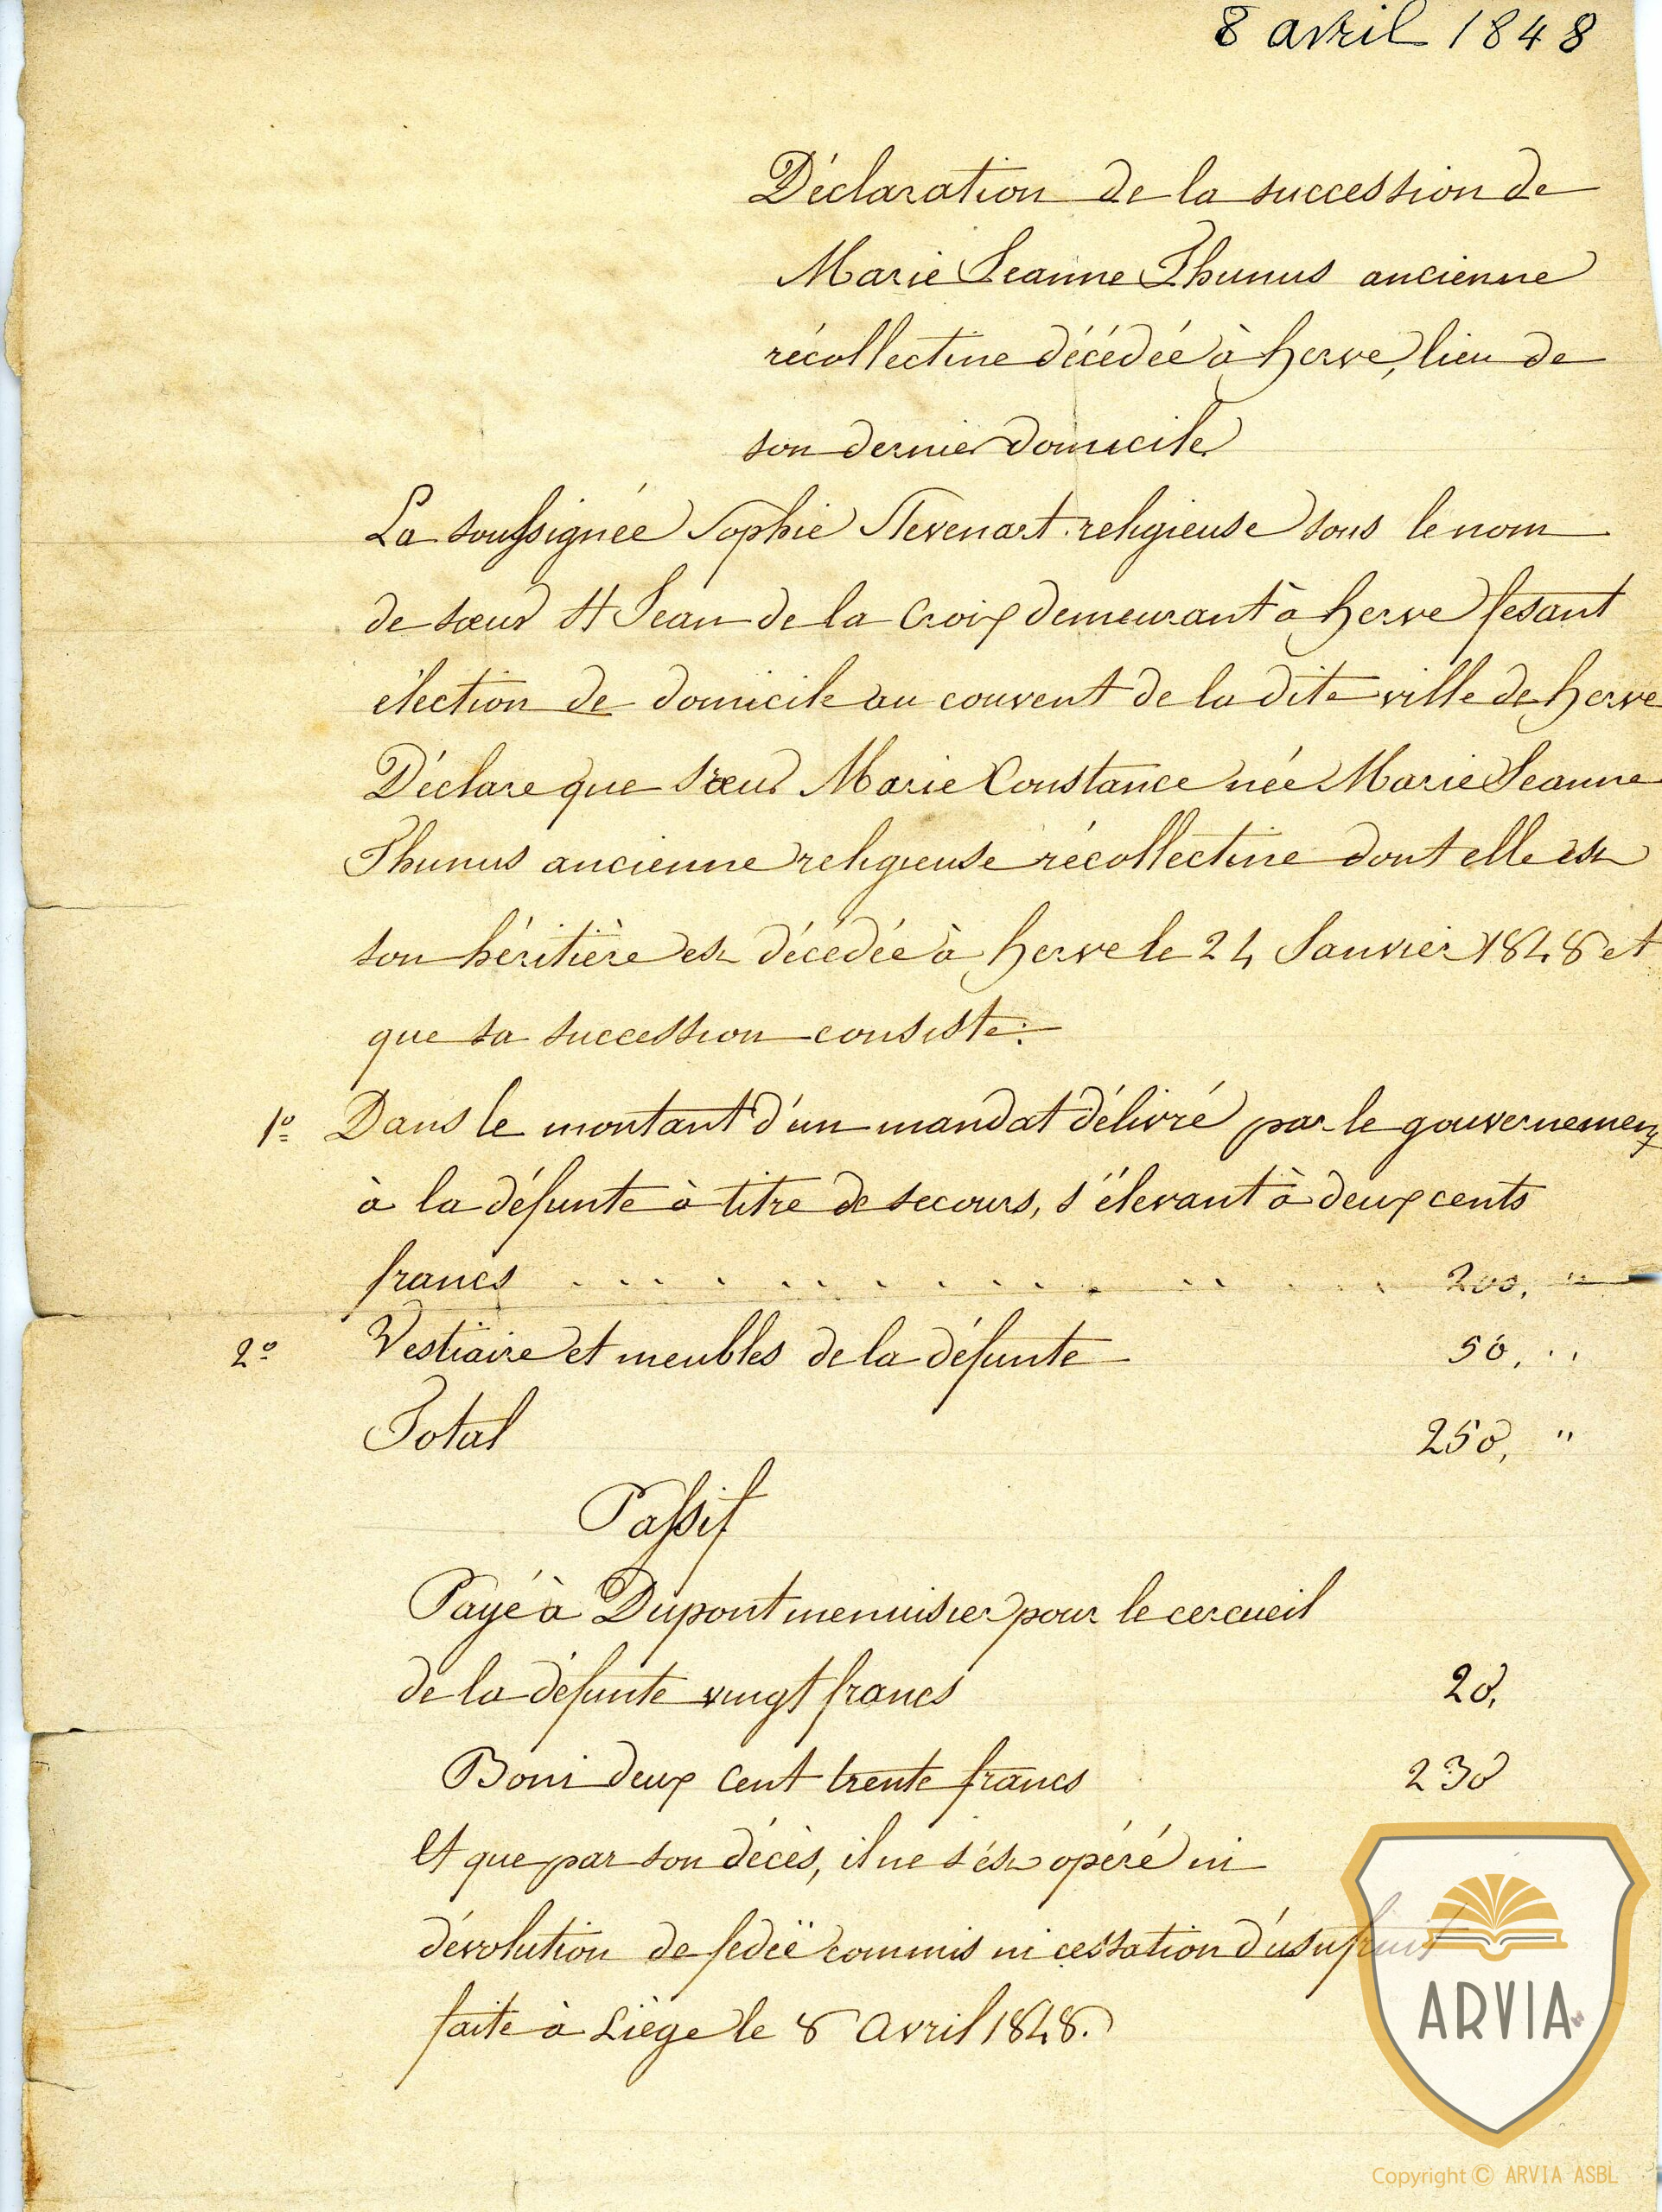 8 avril 1848
Déclaration de la succession de
Marie Jeanne Thunus ancienne
récollectine décédée à herve, lieu de
son dernier domicile
La soussignée Sophie Stevenart religieuse sous le nom
de sœur St Jean de la Croix demeurant à herve fesant
élection de domicile au couvent de la dite ville de herve
Déclare que sœur Marie Constance née Marie Jeanne
Thunus ancienne religieuse récollectine dont elle est
son héritière est décédée à herve le 24 Janvier 1848 et
que sa succession consiste:
1º Dans le montant d'un mandat délivré par le gouvernement
à la défunte à titre de secours, s'élevant à deux cents
francs . . . . . . . . . . . . . . . . 200, "
2º Vestiaire et meubles de la défunte 50, "
Total 250, "
Passif
Payé à Dupont menuisier pour le cercueil
de la défunte vingt francs 20,
Boni deux cent trente francs 230
Et que par son décès, il ne s'ést opéré ni
dévolution de fedeï commis ni cessation d'usufruit
faite à Liège le 8 avril 1848.
ARVIA
Copyright © ARVIA ASBL